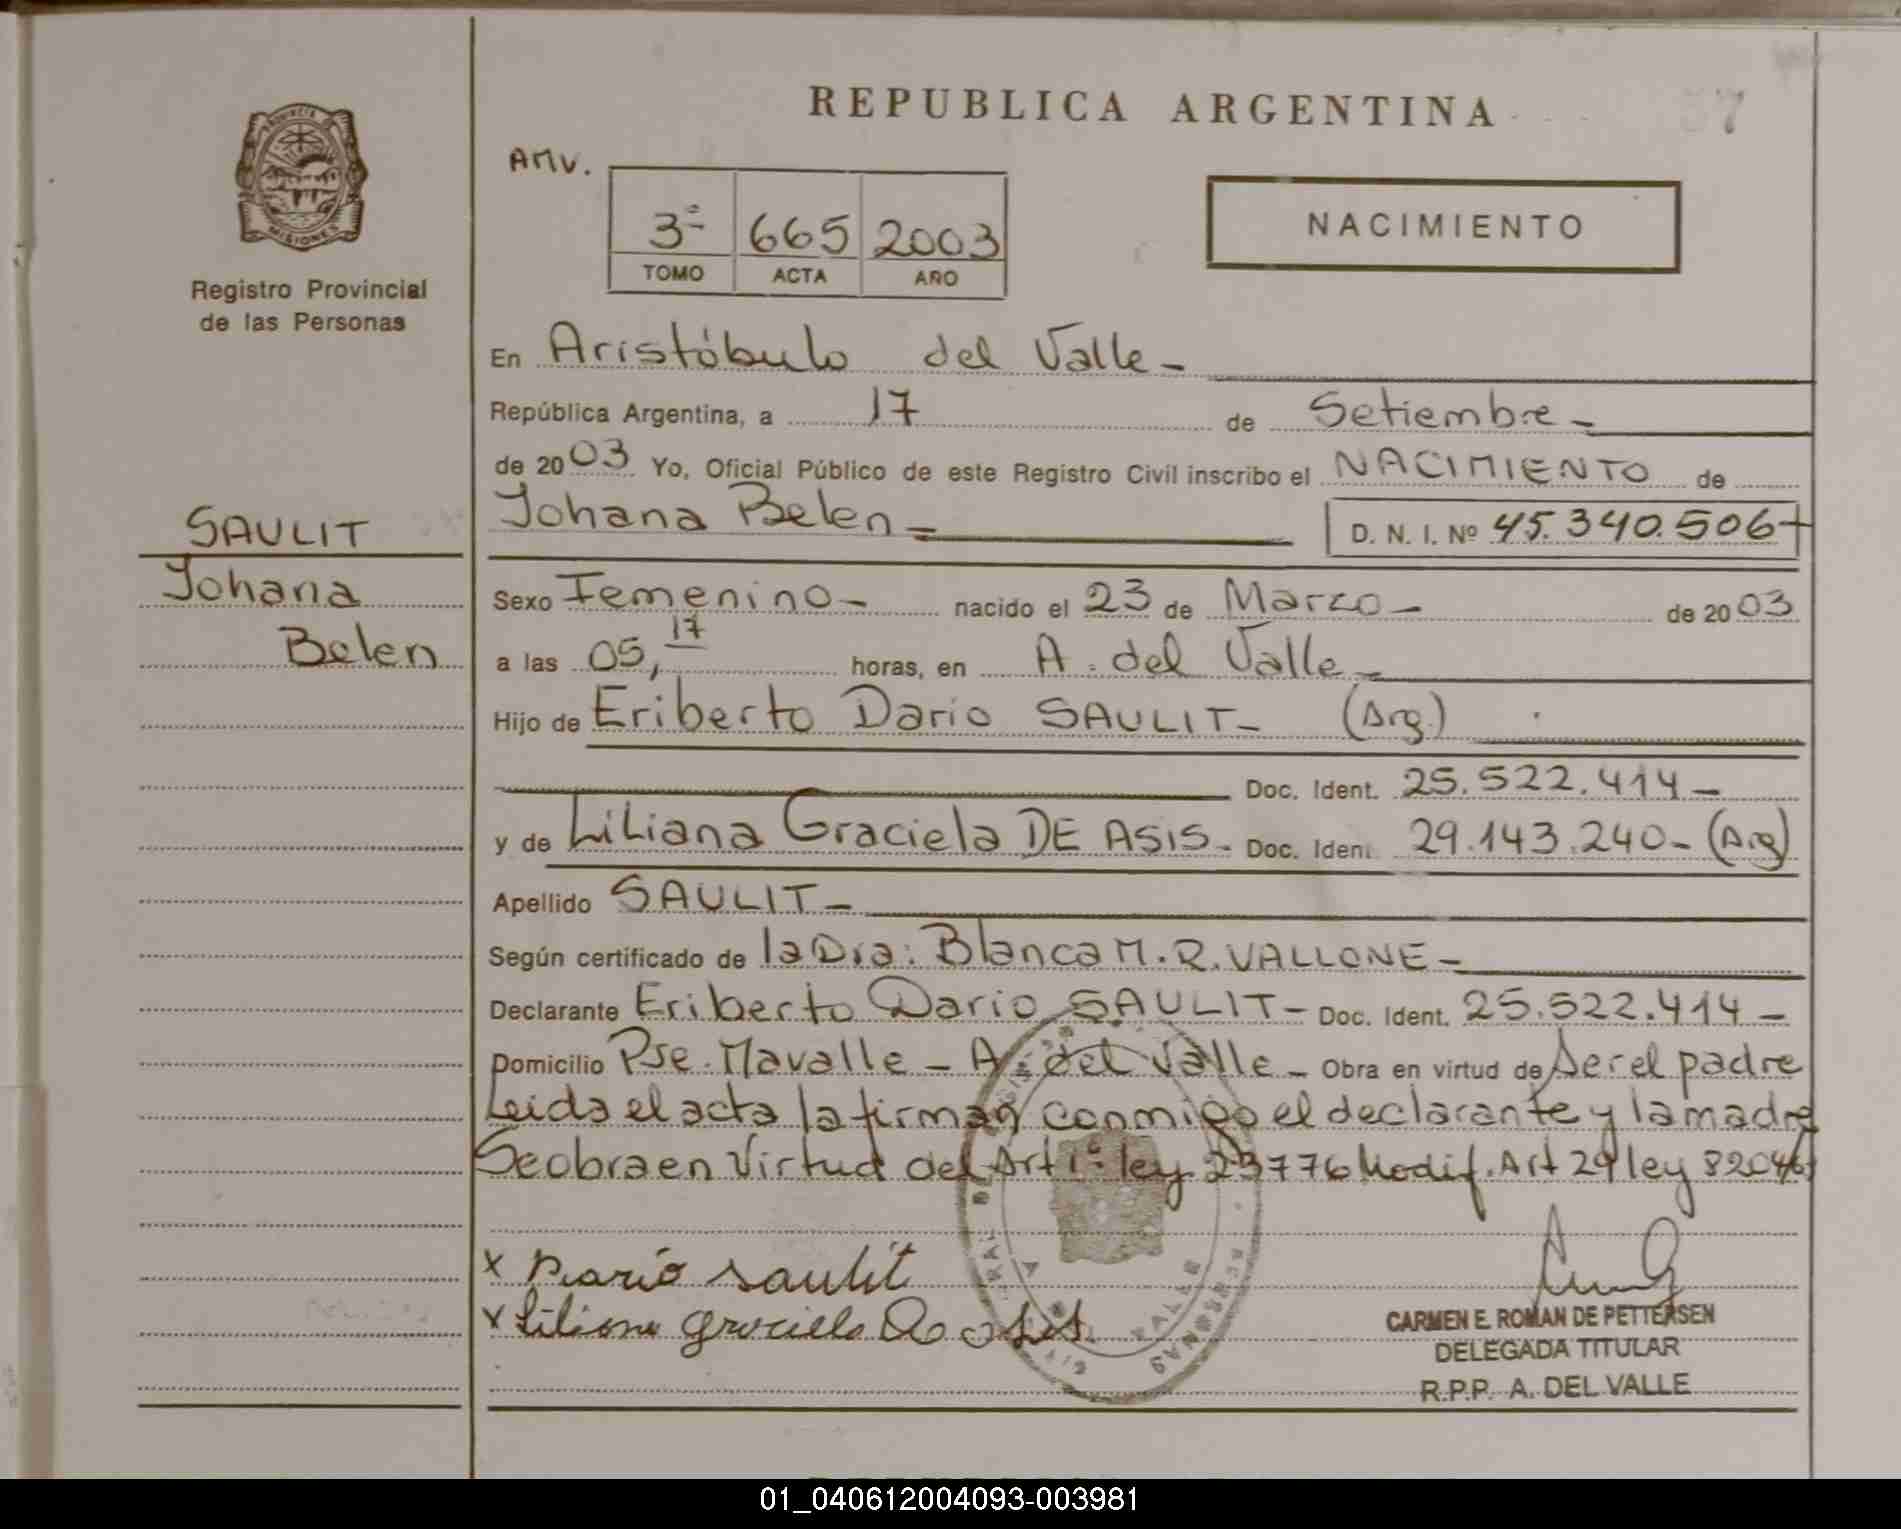 REPUBLICA ARGENTINA
57
PROVINCIA DE
MISIONES
Registro Provincial
de las Personas
AMV.
3º 665 2003
TOMO ACTA AÑO
NACIMIENTO
En Aristóbulo del Valle-
República Argentina, a 17 de Setiembre-
de 2003 Yo, Oficial Público de este Registro Civil inscribo el NACIMIENTO de
Johana Belen= D. N. I. Nº 45.340.506
SAULIT
Johana
Belen
Sexo Femenino- nacido el 23 de Marzo- de 2003
a las 05,17 horas, en A. del Valle-
Hijo de Eriberto Dario SAULIT- (Arg.)
Doc. Ident. 25.522.414-
y de Liliana Graciela DE ASIS- Doc. Ident. 29.143.240-(Arg)
Apellido SAULIT-
Según certificado de la Dra: Blanca M.R.VALLONE-
Declarante Eriberto Dario SAULIT- Doc. Ident. 25.522.414-
Domicilio Pje. Mavalle - A. del Valle- Obra en virtud de Ser el padre
Leida el acta la firman conmigo el declarante y la madre
Se obra en Virtud del Art 1º ley 23776 Modif. Art 29 ley 8204
x Dario Saulit
x Liliana Graciela De Asis
CARMEN E. ROMAN DE PETTERSEN
DELEGADA TITULAR
R.P.P. A. DEL VALLE
01_040612004093-003981